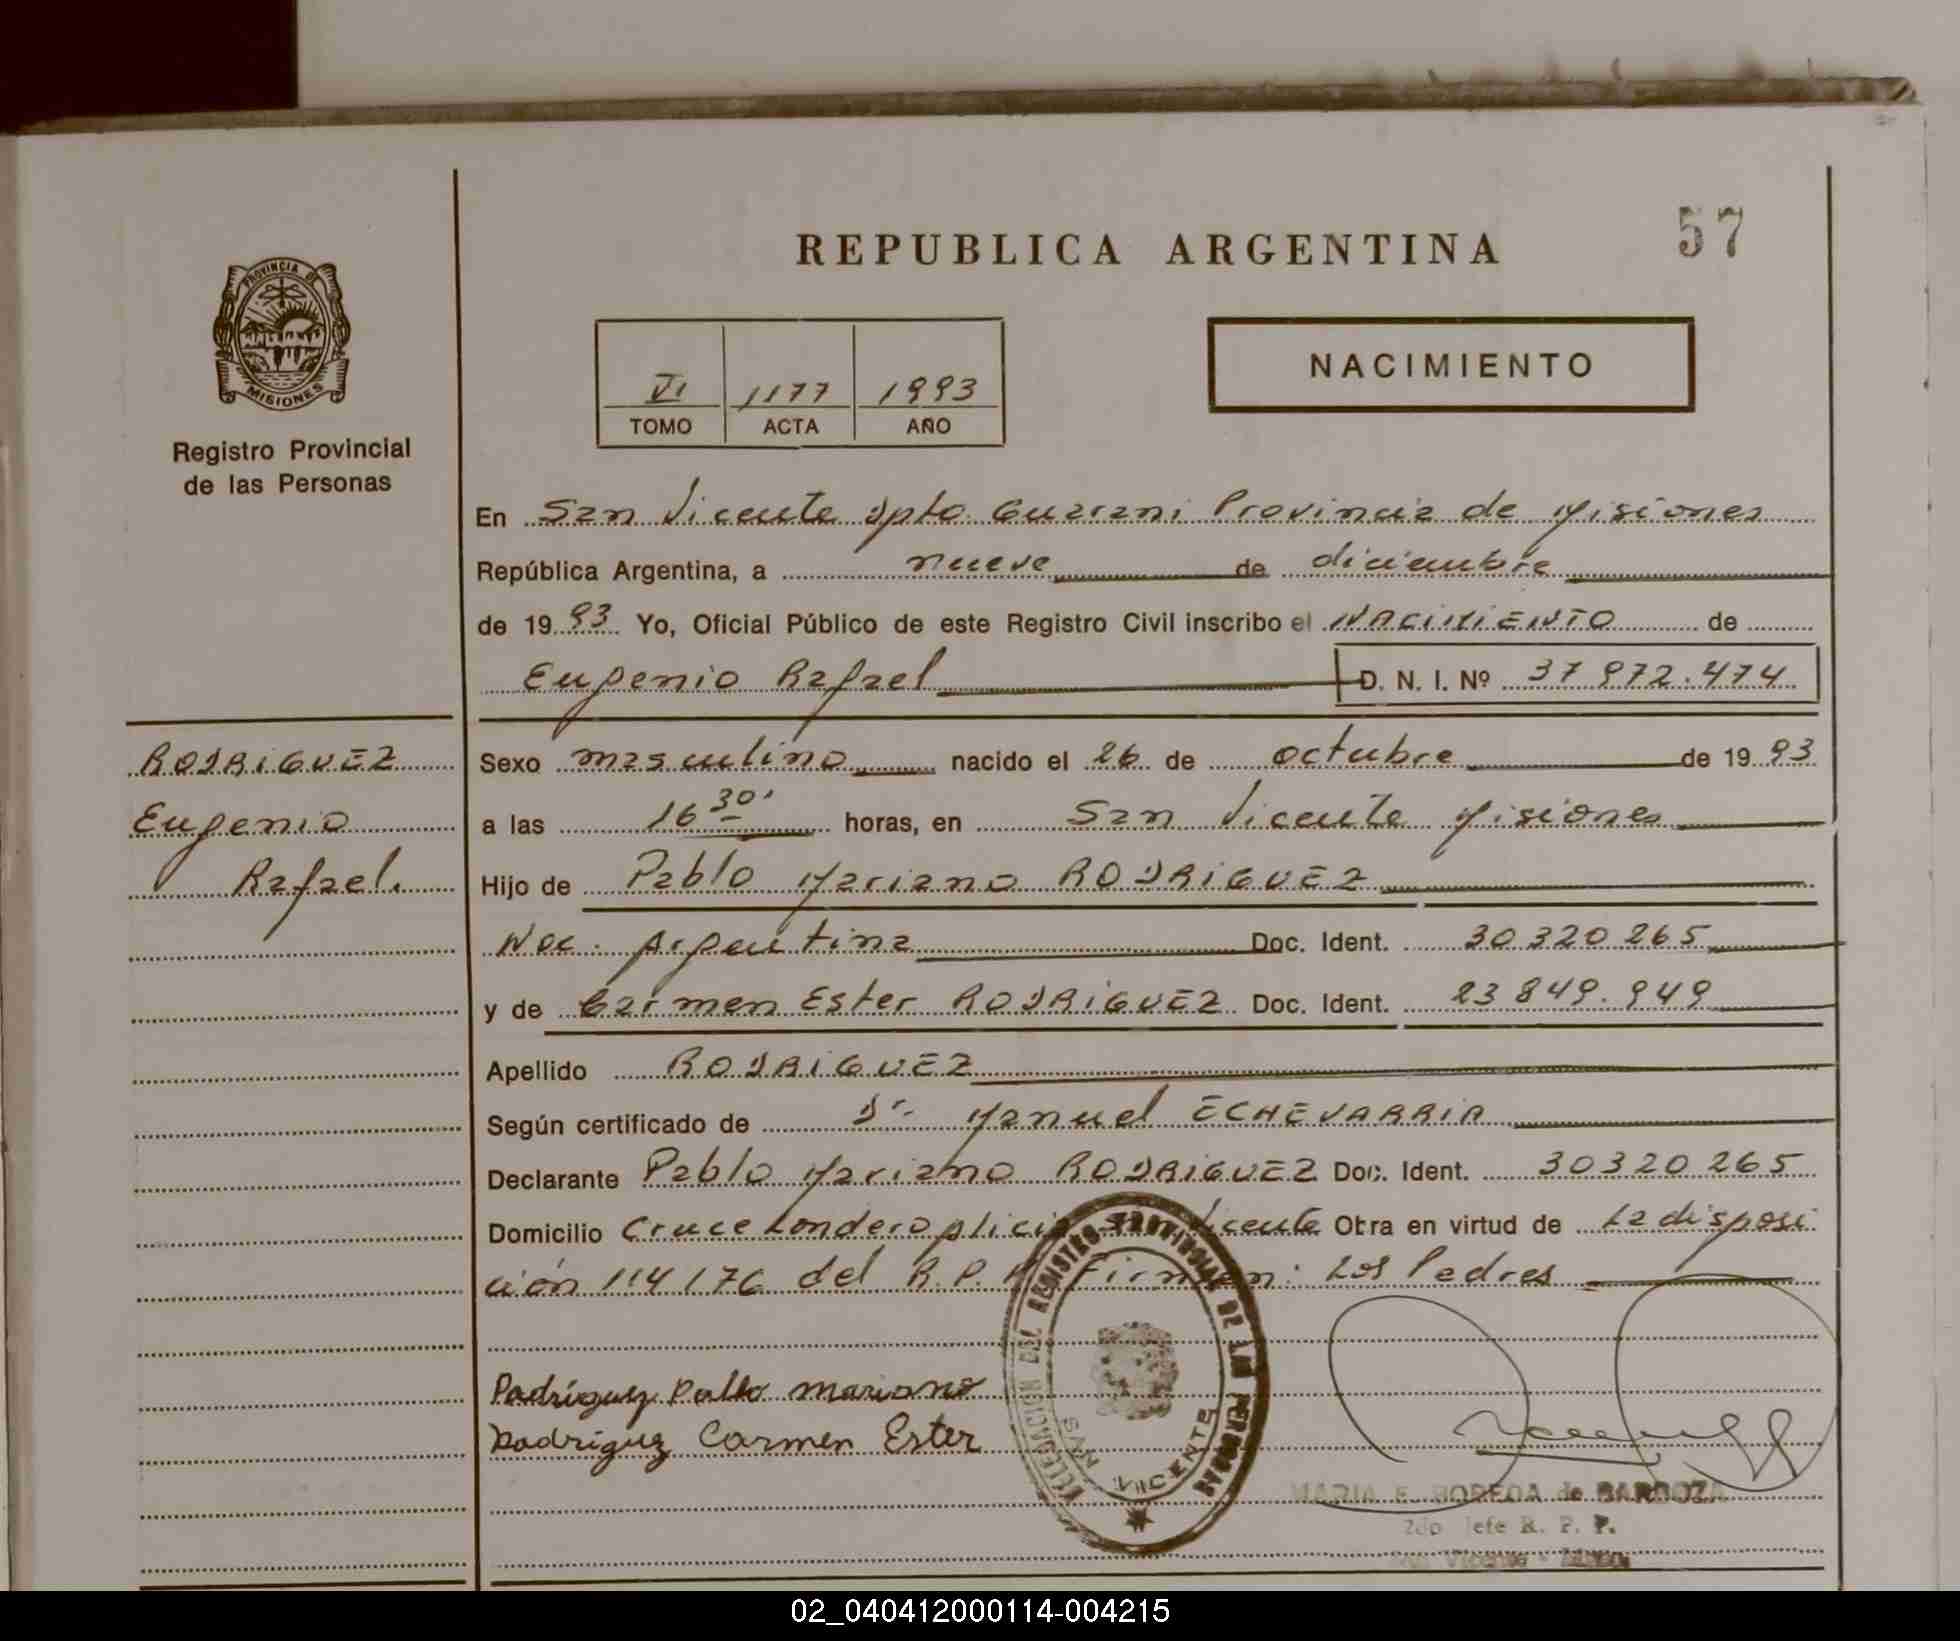 57
REPUBLICA ARGENTINA
PROVINCIA DE
MISIONES
Registro Provincial
de las Personas
VI 1177 1993
TOMO ACTA AÑO
NACIMIENTO
En San Vicente Dpto Guarani Provincia de Misiones
República Argentina, a nueve de diciembre
de 1993 Yo, Oficial Público de este Registro Civil inscribo el NACIMIENTO de
Eugenio Rafael D. N. I. Nº 37 972.474
RODRIGUEZ
Eugenio
Rafael.
Sexo masculino nacido el 26 de octubre de 1993
a las 16 30' horas, en San Vicente Misiones
Hijo de Pablo Mariano RODRIGUEZ
Nac. Argentina Doc. Ident. 30 320 265
y de Carmen Ester RODRIGUEZ Doc. Ident. 23 849.949
Apellido RODRIGUEZ
Según certificado de Dr. Manuel ECHEVARRIA
Declarante Pablo Mariano RODRIGUEZ Doc. Ident. 30320 265
Domicilio Cruce Londero San Vicente Obra en virtud de La disposi
ción 114/76 del R.P. Firman: Los Padres
Rodríguez Pablo Mariano
Rodríguez Carmen Ester
DELEGACION DEL REGISTRO PROVINCIAL DE LAS PERSONAS
SAN VICENTE
MARIA E. de BARBOZA
2do Jefe R. P. P.
San Vicente - Mnes.
02_040412000114-004215